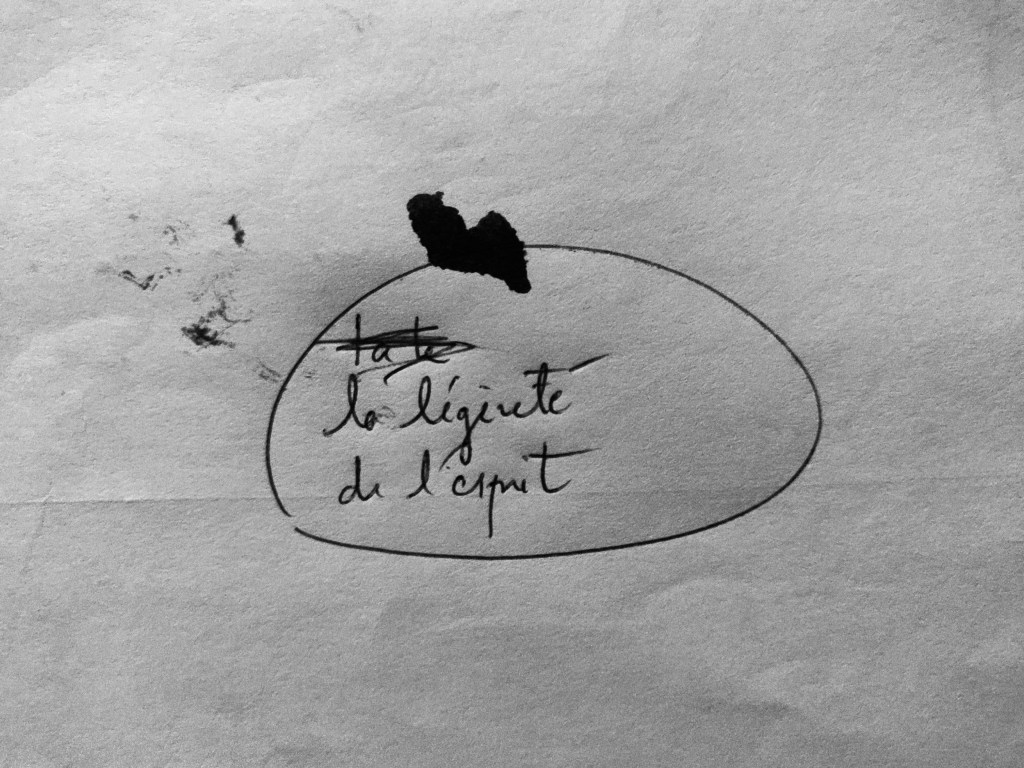 la légèreté
de l'esprit